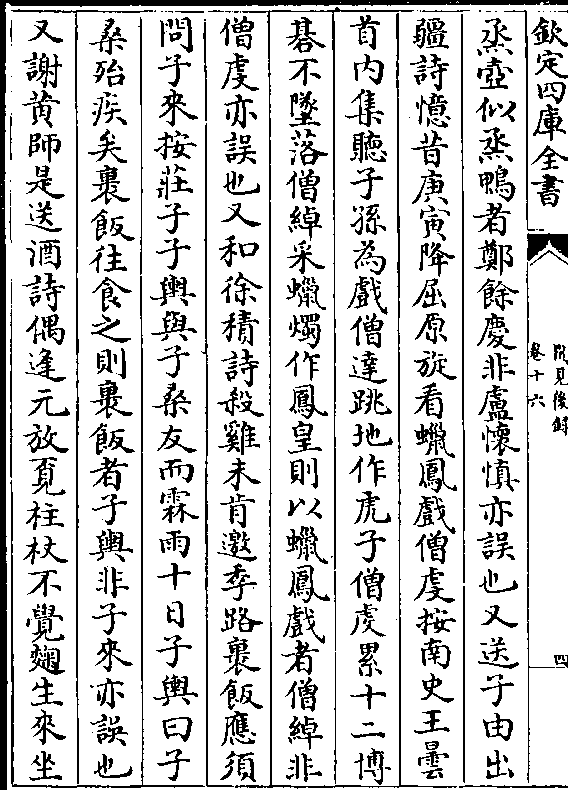 欽定四庫全書
聞見後錄
卷十六
四
烝壺似烝鴨者鄭餘慶非盧懷慎亦誤也又送子由出
疆詩憶昔庚寅降屈原旋看蠟鳳戲僧虔按南史王曇
首内集聽子孫為戲僧達跳地作虎子僧虔累十二博
棊不墜落僧綽采蠟燭作鳳皇則以蠟鳳戲者僧綽非
僧虔亦誤也又和徐積詩殺雞未肯邀季路裹飯應須
問子來按莊子子輿與子桑友而霖雨十日子輿曰子
桑殆疾矣裹飯往食之則裹飯者子輿非子來亦誤也
又謝黄師是送酒詩偶逢元放覓柱杖不覺麴生來坐